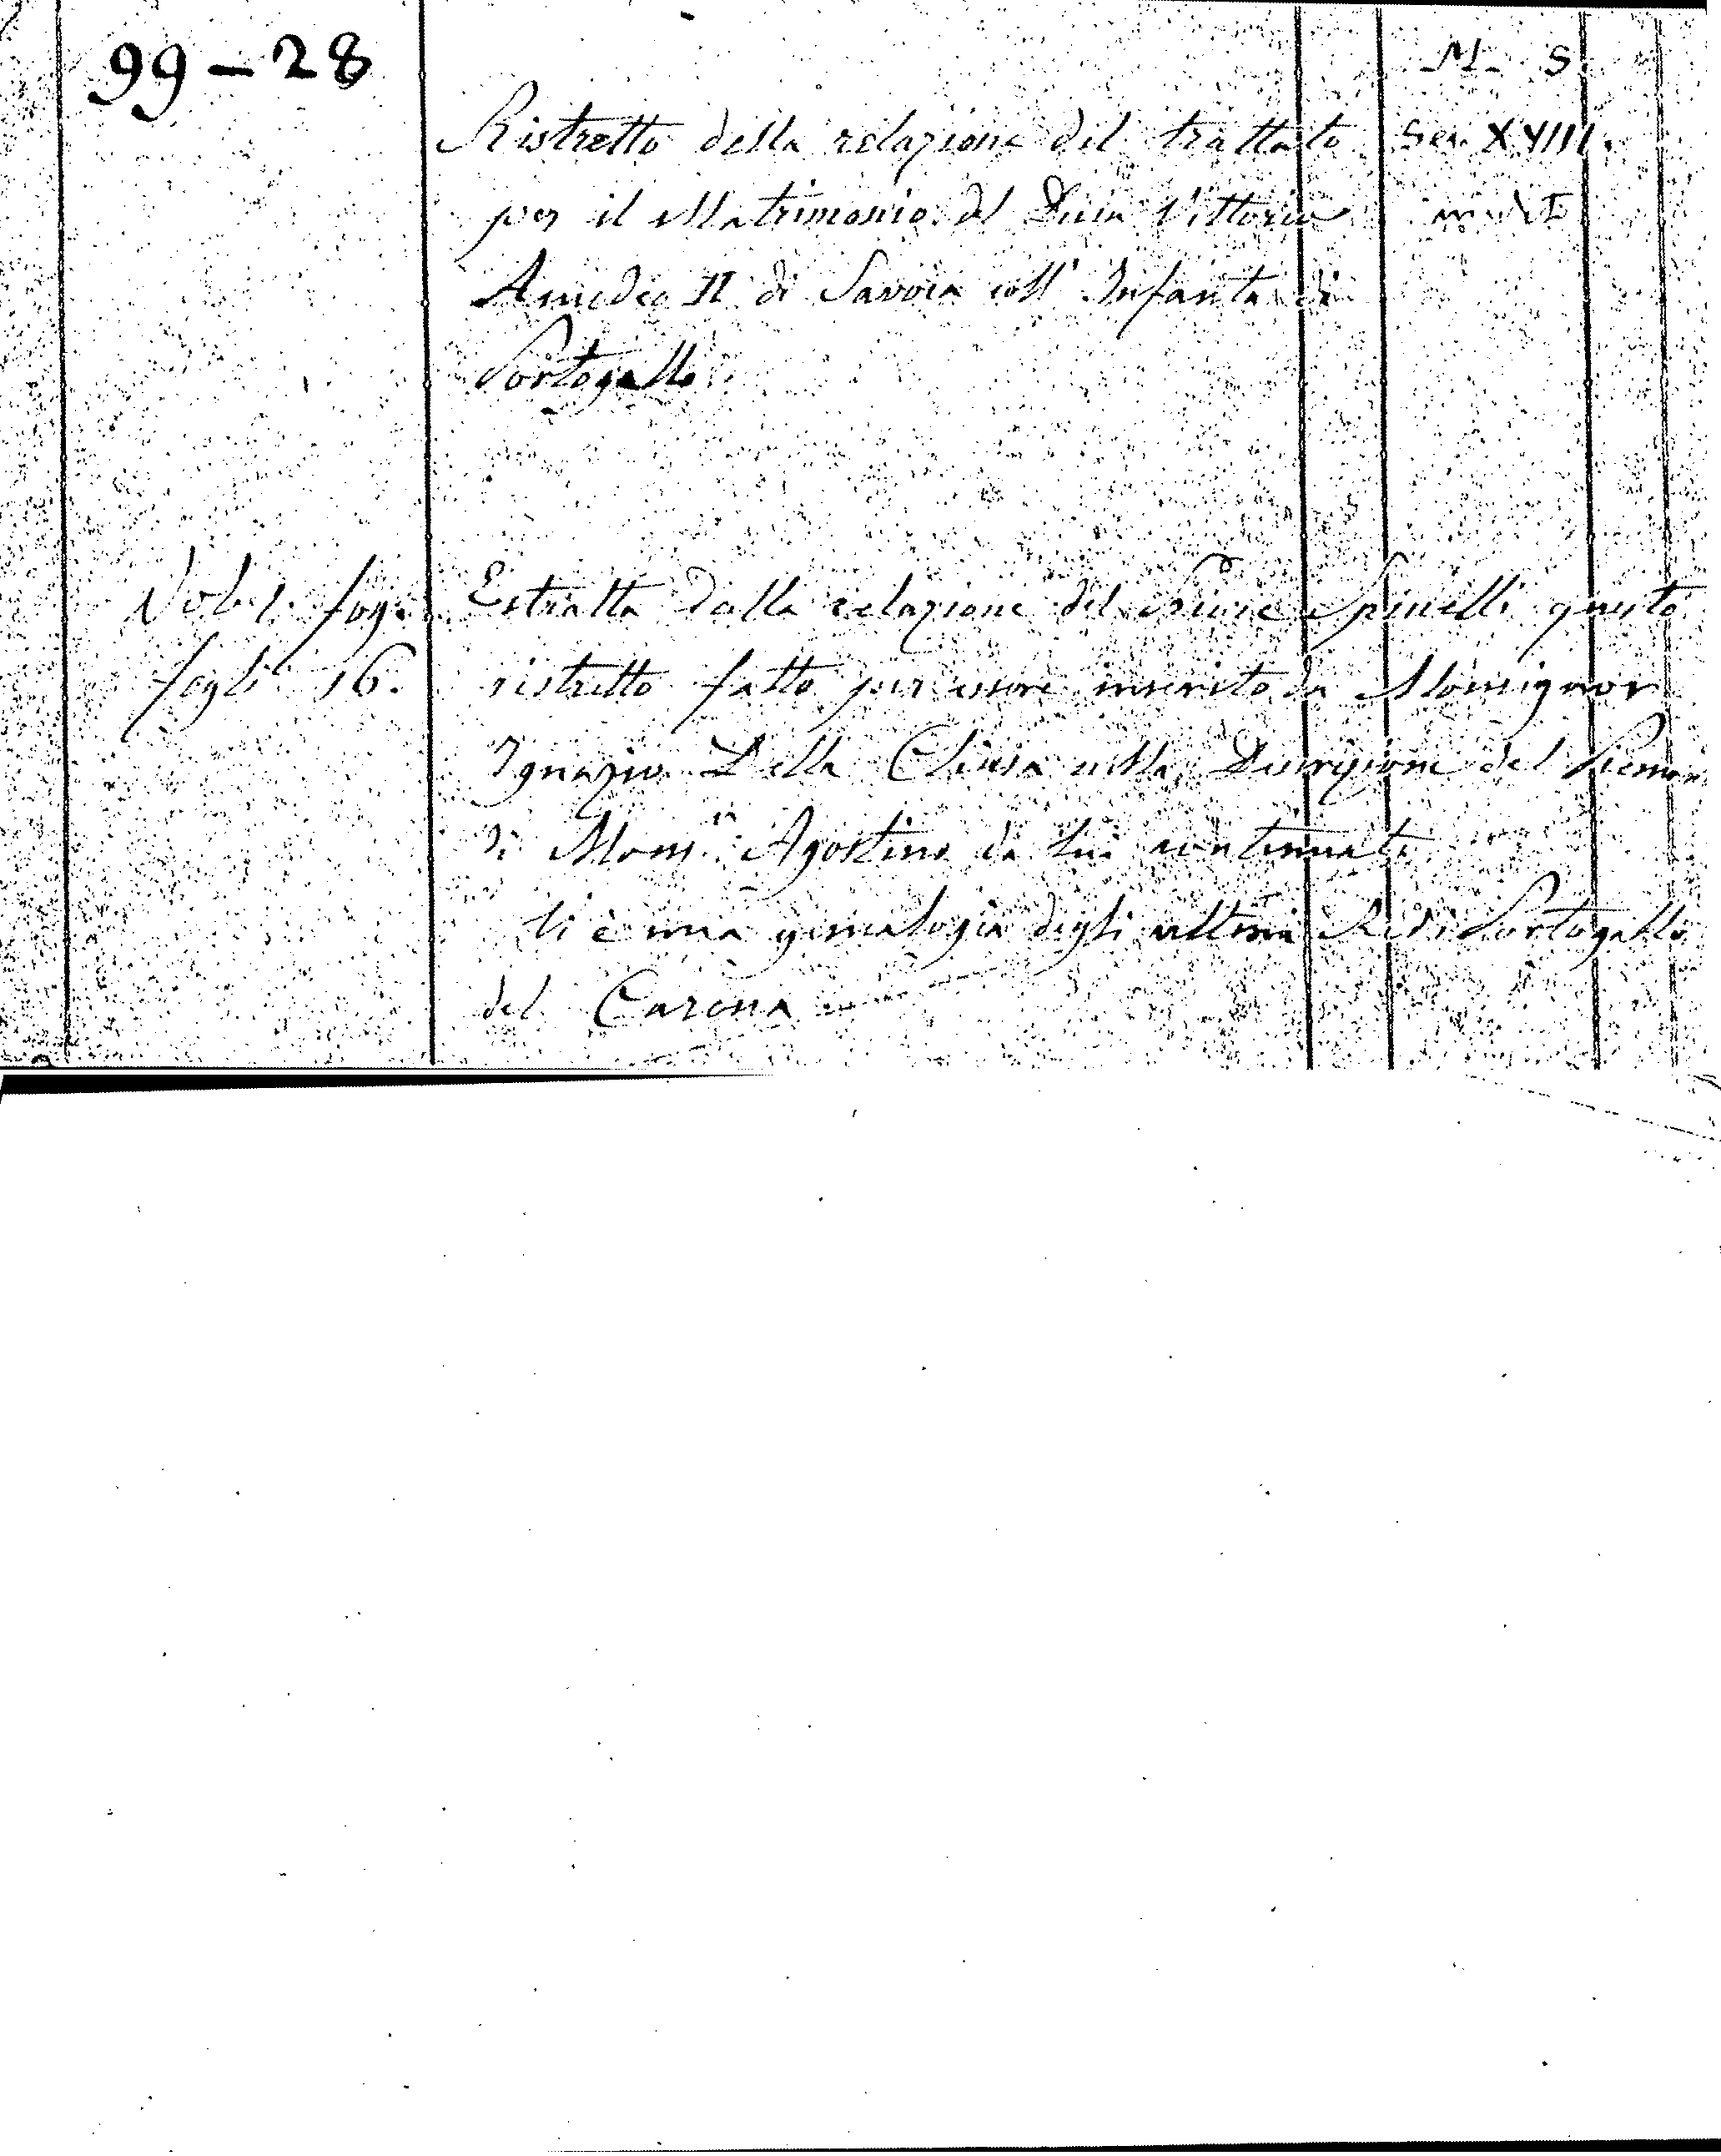 99-28
M. S.
Ristretto della relazione del trattato Sec. XVIII.
per il Matrimonio del Duca Vittorio
Amedeo II di Savoia coll' Infanta di
Portogallo
Vol. 1. fog.
Estratto dalla relazione del Priore Spinelli questo
fogli 16.
ristretto fatto per essere inserito da Monsignor
Ignazio Della Chiesa nella Descrizione del Piemon
di Mons.r Agostino da lui continuata
Vi è una genealogia degli ultimi Re di Portogallo
del Carena